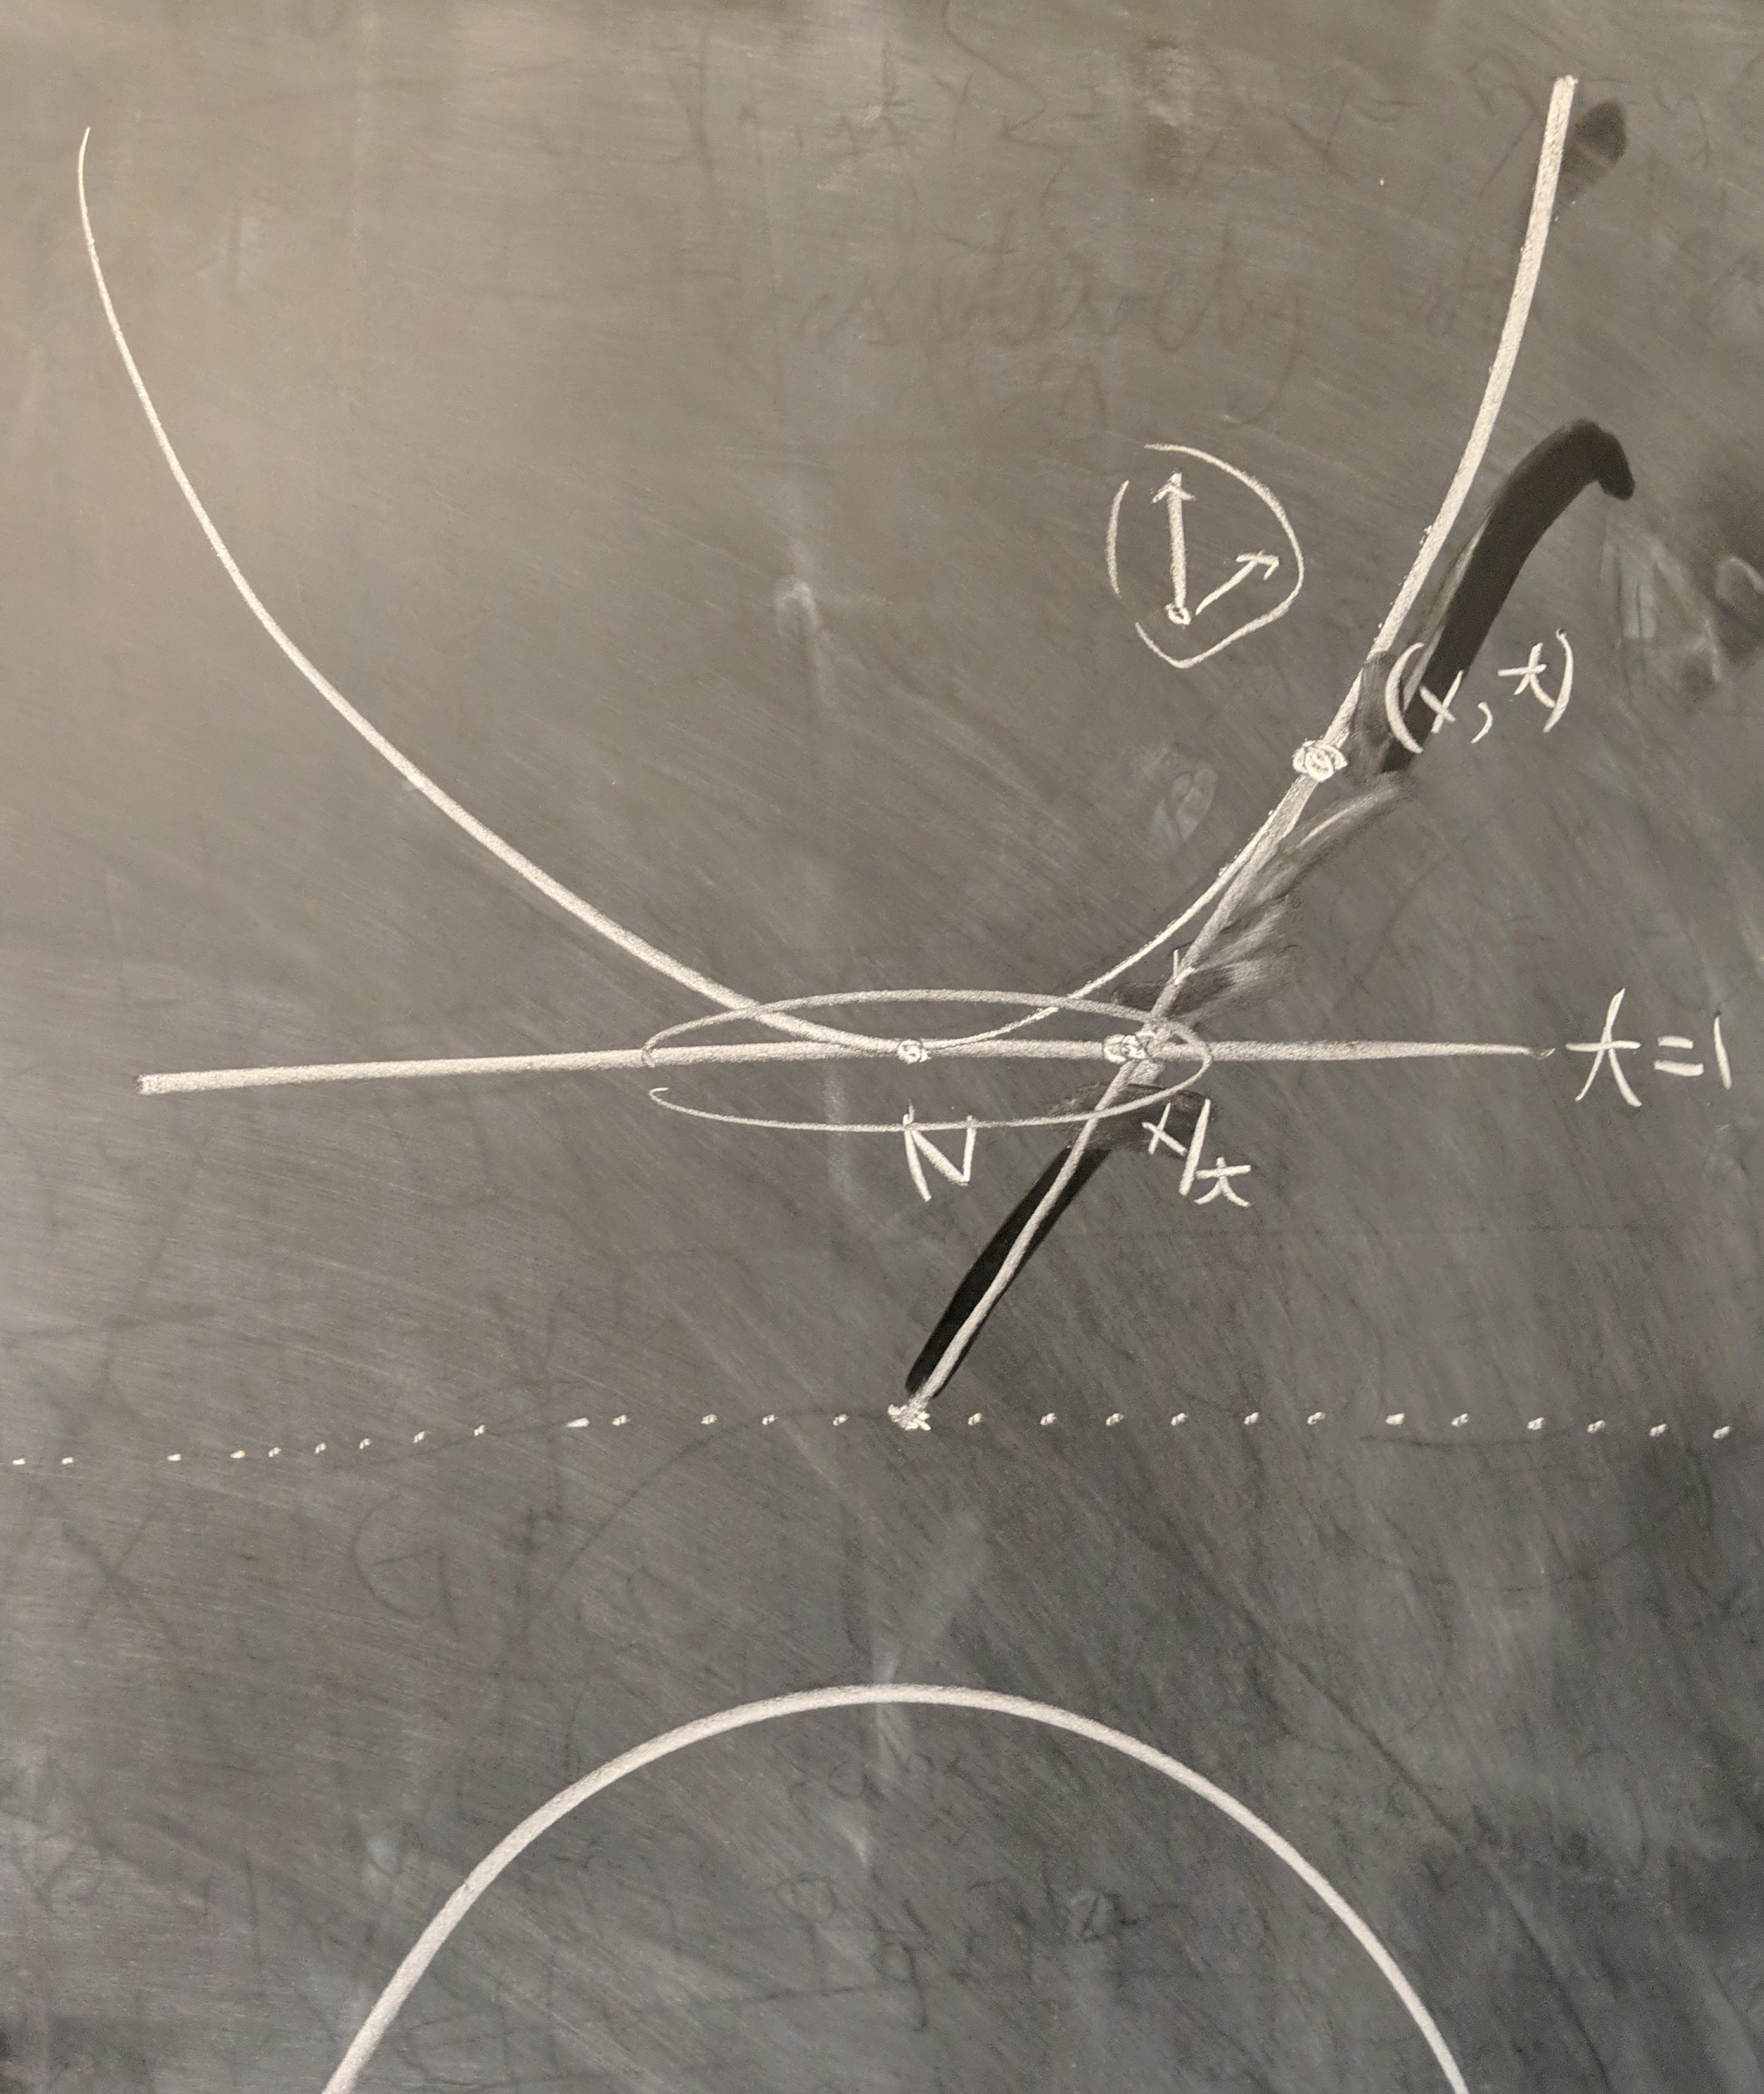 (x, t)
t=1
N
x/t